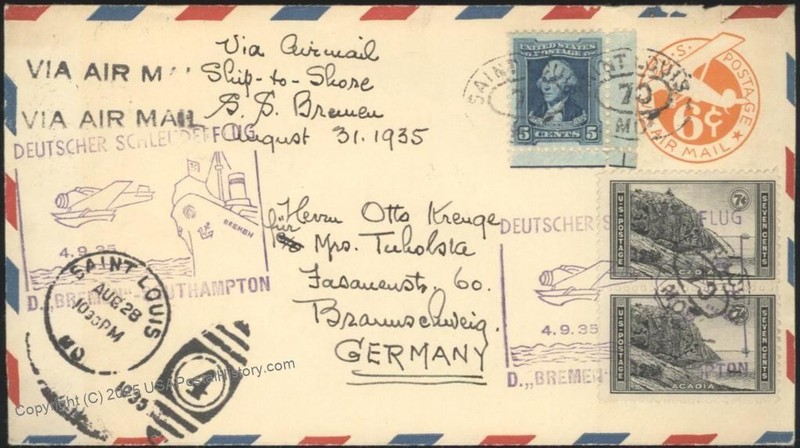 VIA AIR MAIL
VIA AIR MAIL
Via Airmail
Ship-to-Shore
S.S. Bremen
August 31. 1935
DEUTSCHER SCHLEUDERFLUG
BREMEN
4.9.35
D. „BREMEN"-SOUTHAMPTON
UNITED STATES
POSTAGE
5 CENTS 5
SAINT LOUIS
MO.
70
U.S. POSTAGE
6¢
AIR MAIL
Herrn Otto Krenge
für
Mrs. Tuholska
Fasanenstr. 60.
Braunschweig.
GERMANY
DEUTSCHER S FLUG
4.9.35
D. „BREMEN" PTON
U.S. POSTAGE
7¢
SEVEN CENTS
ACADIA
U.S. POSTAGE
SEVEN CENTS
ACADIA
SAINT LOUIS
AUG 28
PM
MO
1935
4
Copyright (C) 2025 USAPostalHistory.com